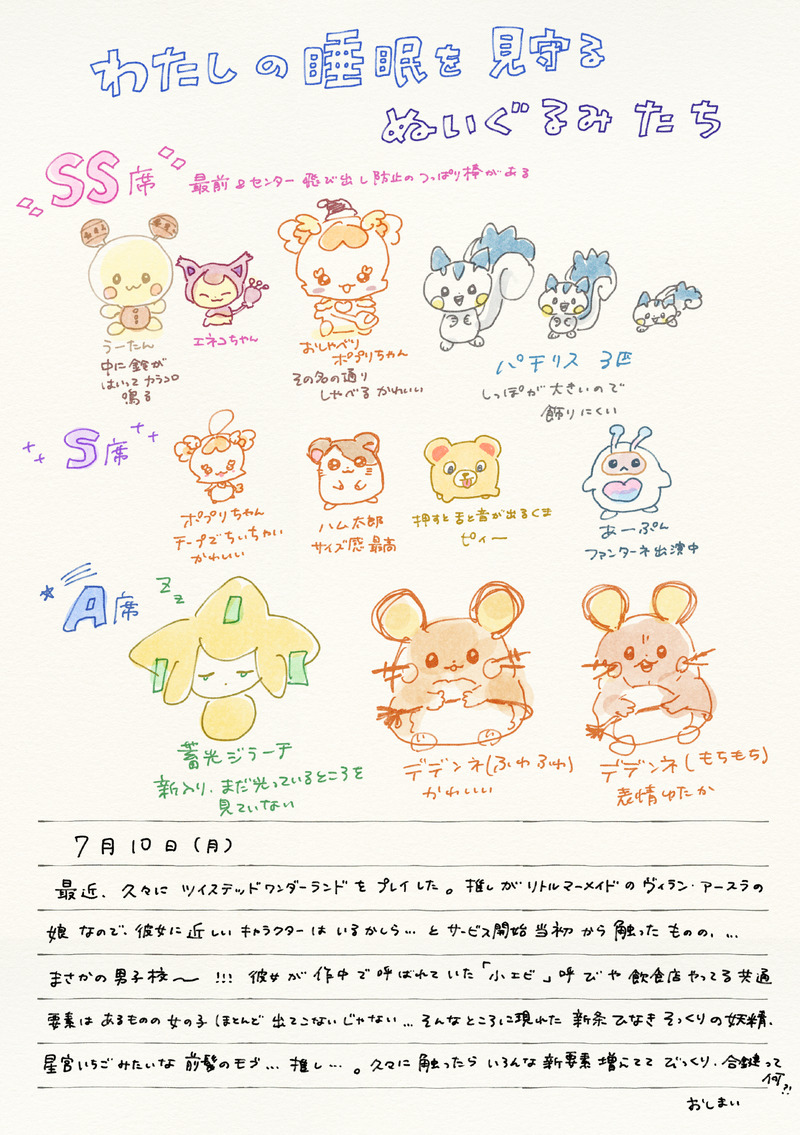 わたしの睡眠を見守る
ぬいぐるみたち
SS席 最前&センター 飛び出し防止のつっぱり棒がある
うーたん
中に鈴が
はいってカラコロ
鳴る
エネコちゃん
おしゃべり
ポプリちゃん
その名の通り
しゃべる かわいい
パチリス 3匹
しっぽが大きいので
飾りにくい
S席
ポプリちゃん
チープでちいちゃい
かわいい
ハム太郎
サイズ感最高
押すと舌と音が出るくま
ピィー
あーぷん
ファンターネ出演中
A席
Zz
蓄光ジラーチ
新入り、まだ光っているところを
見ていない
デデンネ(ふわふわ)
かわいい
デデンネ(もちもち)
表情ゆたか
7月10日(月)
最近、久々にツイステッドワンダーランドをプレイした。推しがリトルマーメイドのヴィラン・アースラの
娘なので、彼女に近しいキャラクターはいるかしら…とサービス開始当初から触ったものの、…
まさかの男子校〜!!! 彼女が作中で呼ばれていた「小エビ」呼びや飲食店やってる共通
要素はあるものの女の子ほとんど出てこないじゃない…そんなところに現れた新条ひなきそっくりの妖精、
星宮いちごみたいな前髪のモブ…推し…。久々に触ったらいろんな新要素増えててびっくり、合鍵って
何?!
おしまい